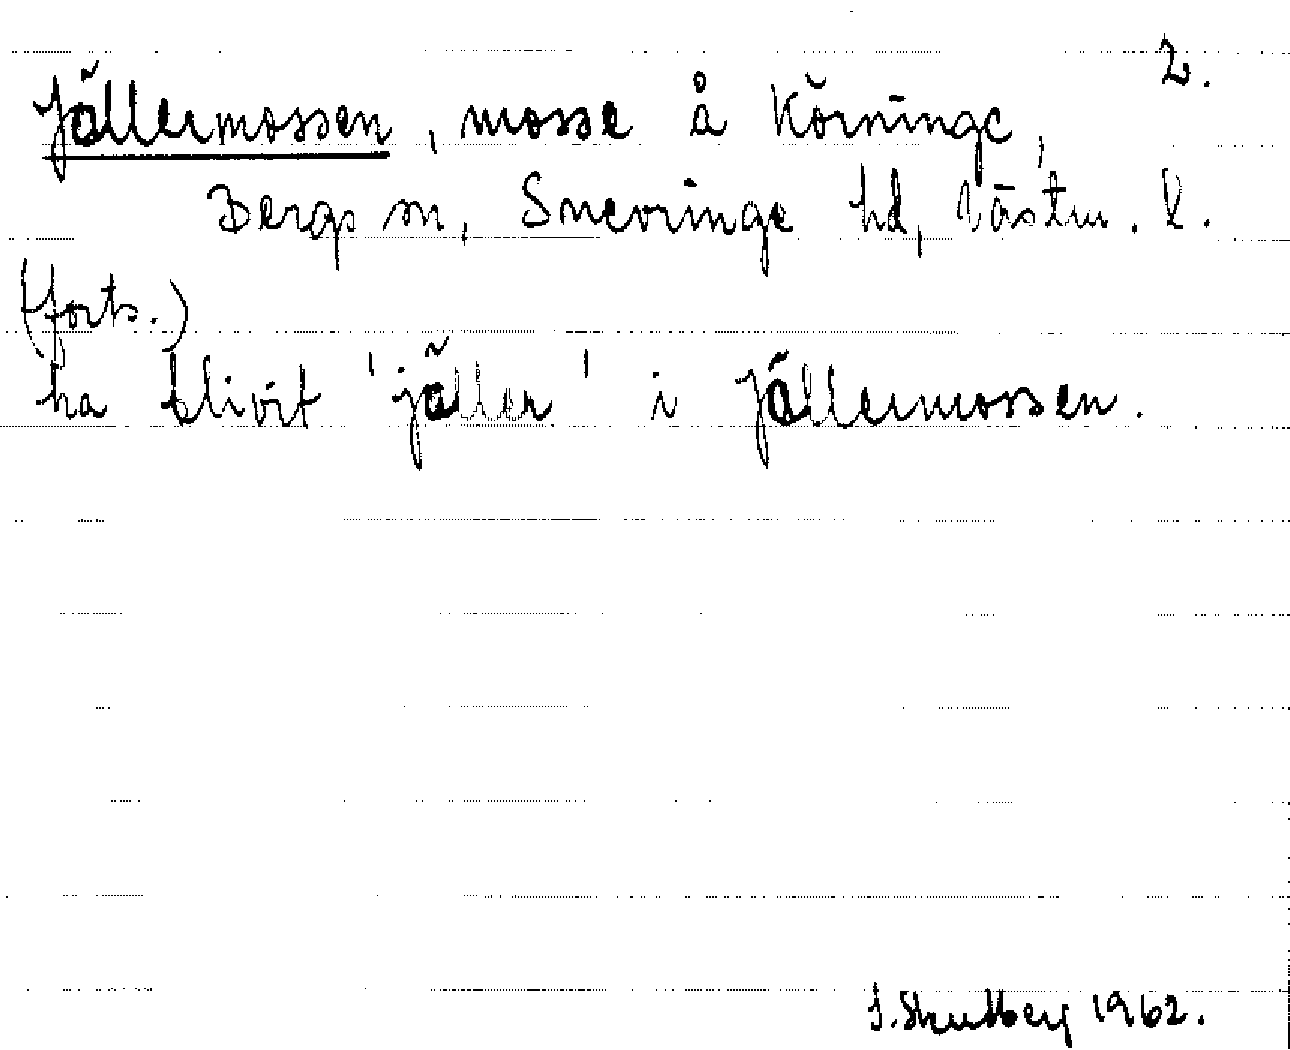 2.
Jällermossen, mosse å Körninge,
Bergs sn, Snevringe hd, Västm. l.
(forts.)
ha blivit 'jäller' i Jällermossen.
1962.